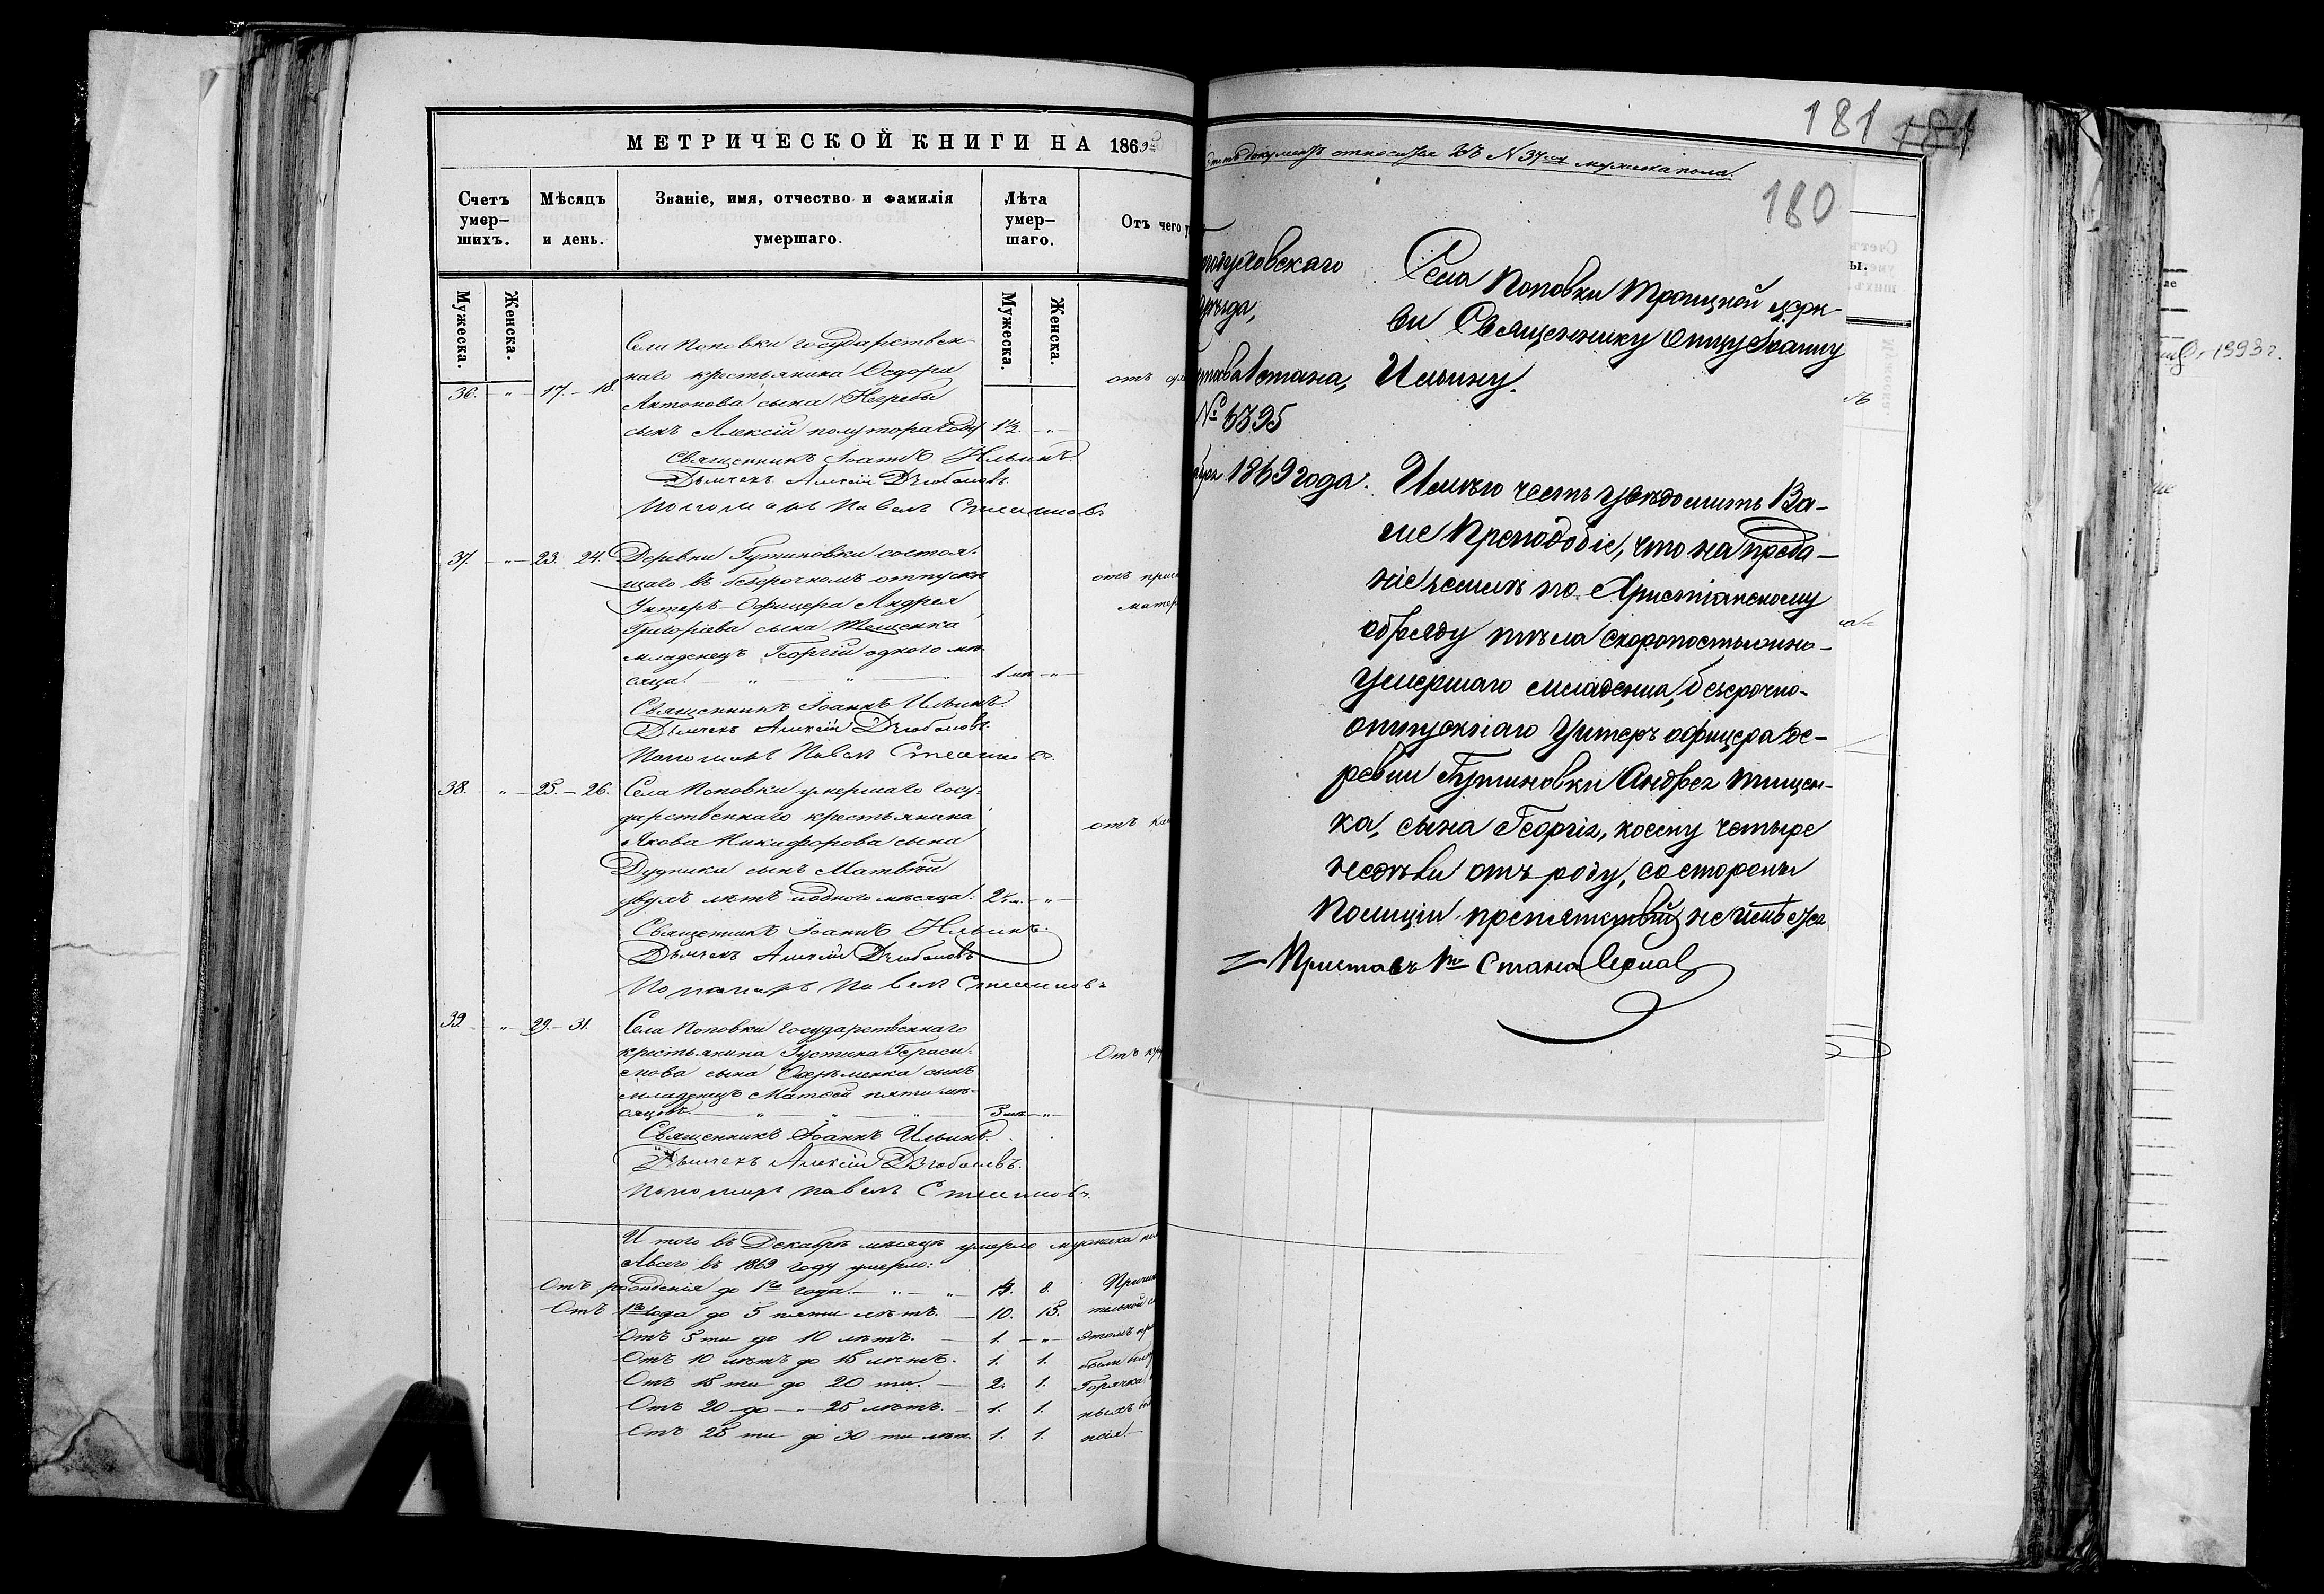 МЕТРИЧЕСКОЙ КНИГИ НА 1869
Счетъ умер–шихъ.
Мѣсяцъ и день.
Званіе, имя, отчество и фамилія умершаго.
Лѣта умер–шаго.
Отъ чего у
Мужеска.
Женска.
Мужеска.
Женска.
Села Поповки государствен
наго крестьянина Ѳедора
36. " 17. – 18. Антонова сына Негребы отъ
сынъ Алексій полутора году 1½. "
Священникъ Іоаннъ Ильинъ.
Дьячекъ Алексій Дзюбановъ.
Пономарь Павелъ
37. " 23. 24. Деревни Гутниковки состоя–
щаго въ безсрочномъ отпускѣ
Унтеръ–Офицера Андрея
Григоріева сына Тищенка
младенецъ Георгій одного мѣ–
сяца. " " 1 мѣ. "
Священникъ Іоаннъ Ильинъ.
Дьячекъ Алексій Дзюбановъ.
Пономарь Павелъ
38. " 25. – 26. Села Поповки умершаго госу–
дарственнаго крестьянина
Якова Никифорова сына отъ
Дудника сынъ Матвѣй
двухъ лѣтъ и одного мѣсяца. "
Священникъ Іоаннъ Ильинъ.
Дьячекъ Алексій Дзюбановъ
Пономарь Павелъ
39. " 29. – 31. Села Поповки государственнаго
крестьянина Іустина Гераси–
мова сына сынъ Отъ
младенецъ Матѳей пяти мѣ–
сяцовъ. " " " 5 мѣ. "
Священникъ Іоаннъ Ильинъ.
Дьячекъ Алексій Дзюбановъ.
Пономарь Павелъ
И того въ Декабрѣ мѣсяцѣ умерло мужеска
А всего въ 1869 году умерло:
Отъ рожденія до 1го года. – " – " 8.
Отъ 1го года до 5 пяти лѣтъ. – 10. 15.
Отъ 5 ти до 10 лѣтъ. – 1. "
Отъ 10 лѣтъ до 15 лѣтъ. 1. 1.
Отъ 15 ти до 20 ти. – 2. 1. Горячка
Отъ 20 до – " 25 лѣтъ. – 1. 1.
Отъ 25 ти до 30 ти лѣт. 1. 1.
181 181
документъ относится къ N 37му мужеска пола.
180
Счетъ
ы.
Мужеска.
1 стана,
№ 6395
1869 года.
Села Поповки Троицкой церк–
ви Священнику Отцу Іоанну
Ильину.
Имѣю честь увѣдомить Ва–
ше Преподобіе, что на преда–
ніе землѣ по Христіанскому
обряду тѣла скоропостижно–
умершаго младенца, безсрочно–
отпускнаго Унтеръ офицера де–
ревни Гутниковки Андрея Тищен–
ка, сына Георгія, коему четыре
недѣли отъ роду, со стороны
Полиціи препятствій не имѣется
Приставъ 1го Стана
1993 г.